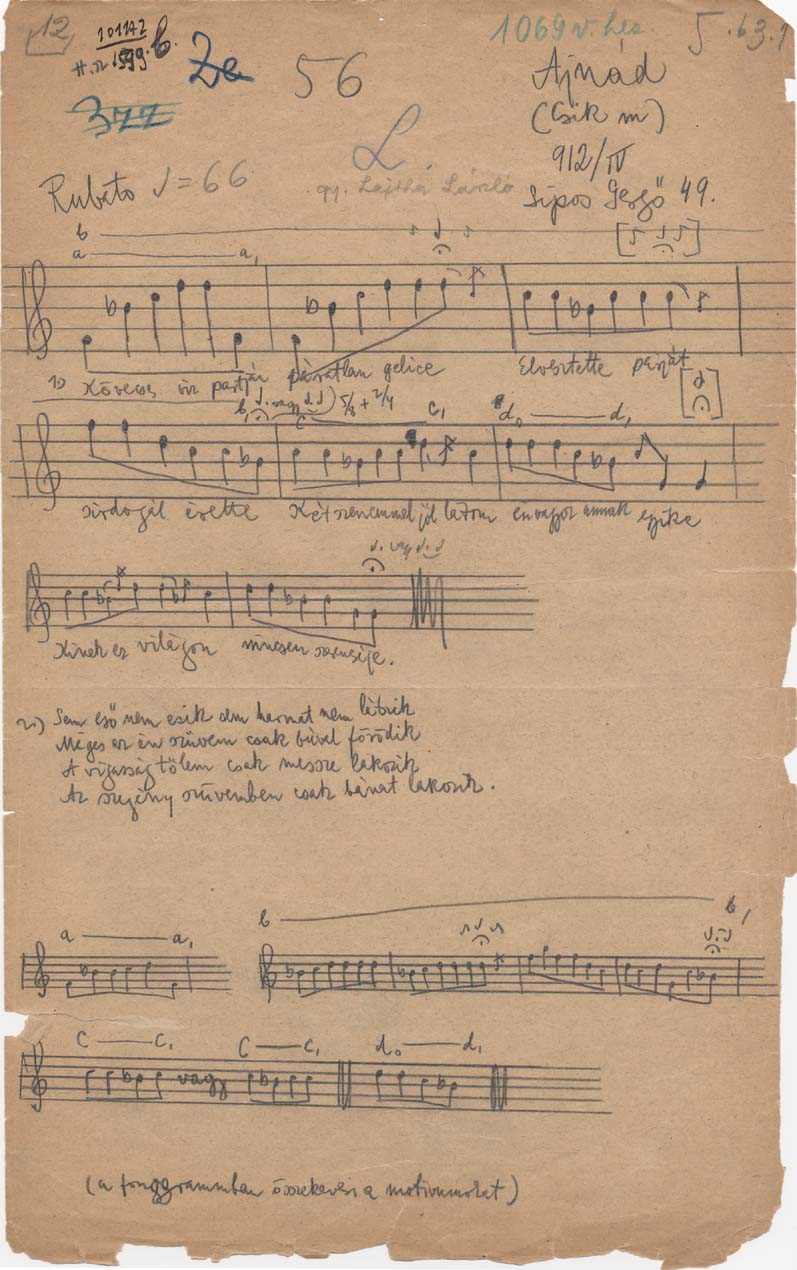 12 10117Z b. Ze 56 1069 v. hés. 5.63.1
H.sz 1599.
377
Ajnád
(Csik m)
L. 912/IV
Rubato ♩=66 gy. Lajtha László Sipos Gergő 49.
b
a a,
1) Köveces víz partján páratlan gelice Elvesztette párját
b, vagy 5/8 + 2/4 c c, d, d,
sirdogál érette Két szememmel jól látom én vagyok annak egyike
vagy
Kinek ez világon nincsen szeneije.
2.) Sem eső nem esik sem harmat nem létszik
Méges az én szüvem csak búvel förödik
A vigasság tőlem csak messze lakozik
Az szegény szüvemben csak bánat lakozik.
a a, b b,
C C, C C, d. d,
vagy
(a fonogrammban összekeveri a motivumokat)